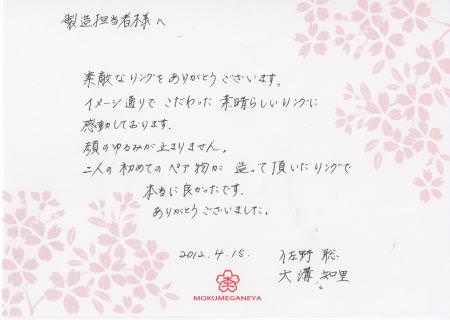 製造担当者様へ
素敵なリングをありがとうございます。
イメージ通りで こだわった 素晴らしいリングに
感動しております.
顔のゆるみが止まりません。
二人の 初めての ペア物が 造って頂いたリングで
本当に良かったです.
ありがとうございました。
2012.4.15. 佐野 聡
大溝 知里
MOKUMEGANEYA